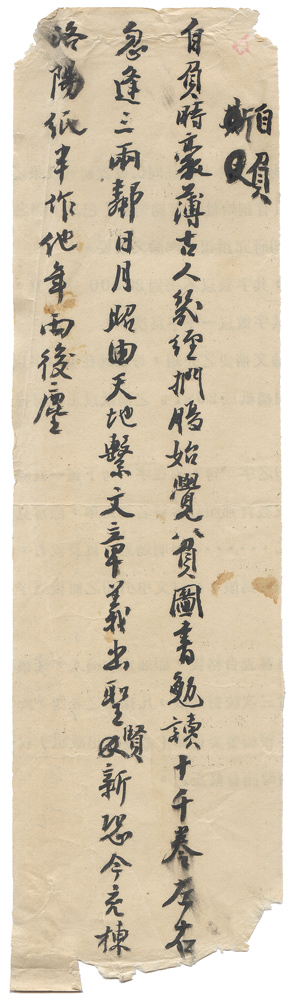 自
自負時豪薄古人幾經捫腸始覺貧圖書勉讀十千卷左右
忽逢三兩鄰日月昭由天地繫文章義出聖賢新恐今充棟
洛陽紙半作他年雨後塵